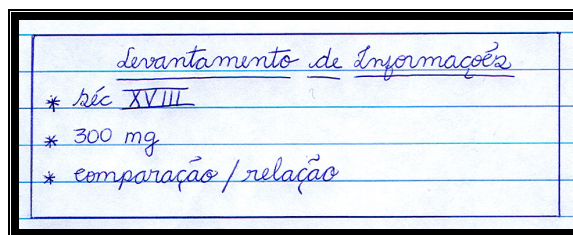 Levantamento de Informações
* séc XVIII
* 300 mg
* comparação / relação